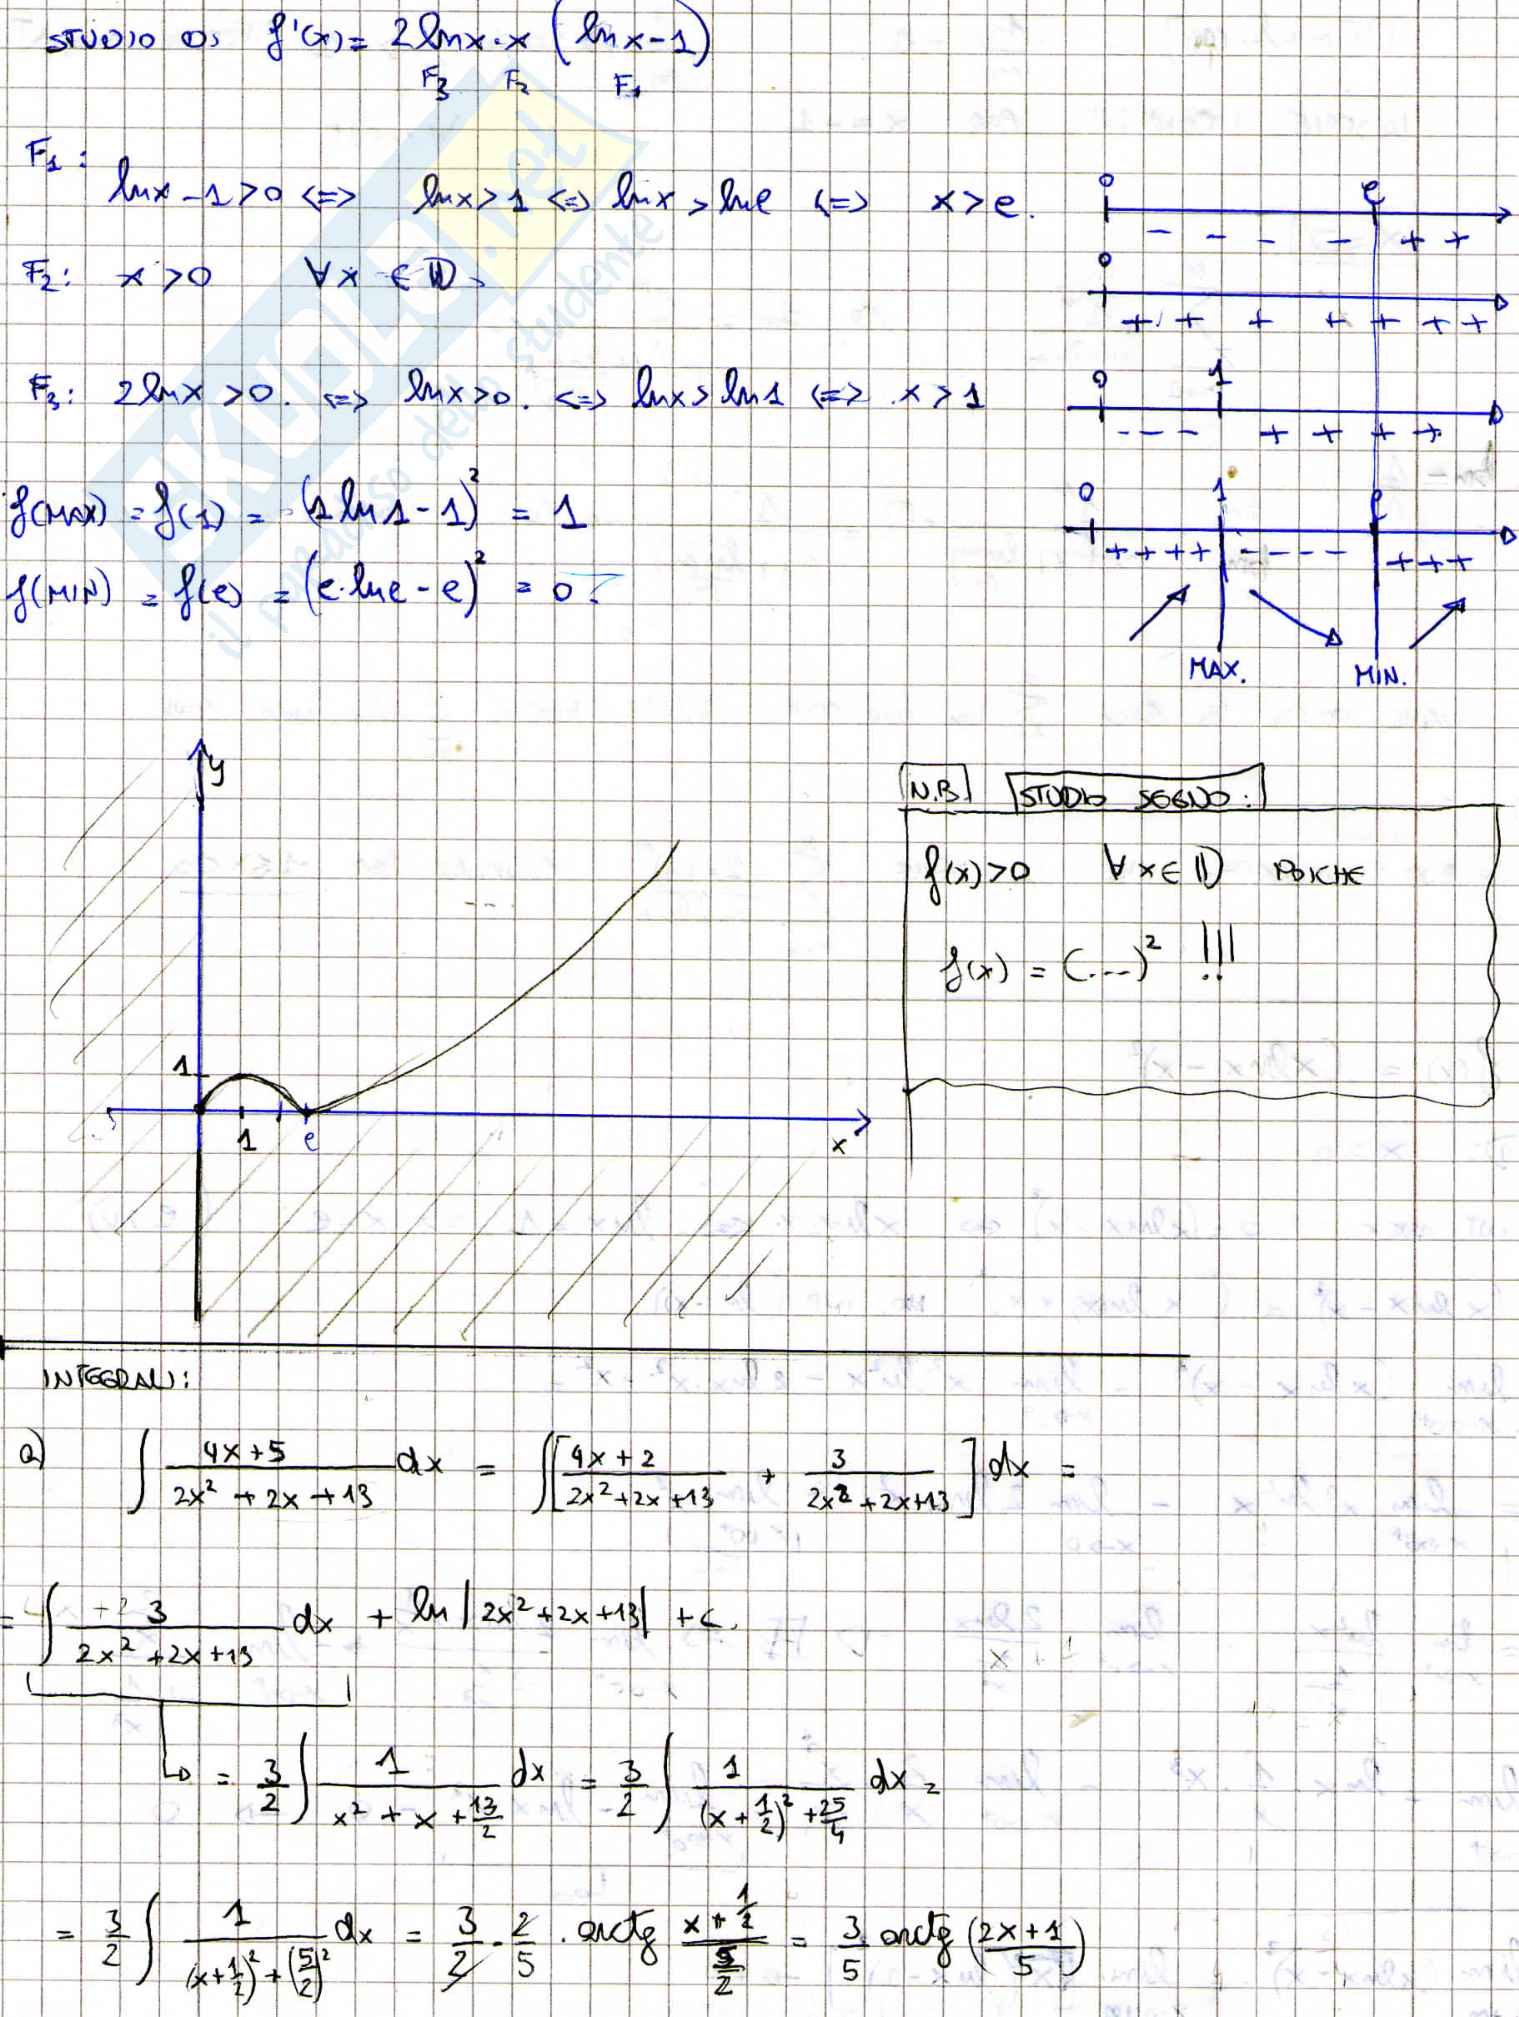 STUDIO DI f'(x) = 2lnx·x (lnx-1)
F3 F2 F1
F1:
lnx-1>0 <=> lnx>1 <=> lnx>lne <=> x>e.
0 e
- - - - + +
F2: x>0 ∀x ∈ D.
0
+ + + + + + +
F3: 2lnx>0. <=> lnx>0. <=> lnx>ln1 <=> x>1
0 1
- - - + + + +
f(MAX) = f(1) = (1ln1-1)² = 1
0 1 e
+ + + + - - - - + + +
f(MIN) = f(e) = (e·lne-e)² = 0
MAX. MIN.
y
N.B STUDIO SEGNO:
f(x)>0 ∀x∈D POICHE
f(x) = (...)² !!!
1
1 e x
INTEGRALI:
a) ∫ (4x+5)/(2x²+2x+13) dx = ∫[(4x+2)/(2x²+2x+13) + 3/(2x²+2x+13)] dx =
= ∫ 3/(2x²+2x+13) dx + ln|2x²+2x+13| + c.
= 3/2 ∫ 1/(x²+x+13/2) dx = 3/2 ∫ 1/((x+1/2)²+25/4) dx =
= 3/2 ∫ 1/((x+1/2)²+(5/2)²) dx = 3/2 · 2/5 · arctg (x+1/2)/(5/2) = 3/5 arctg ((2x+1)/5)